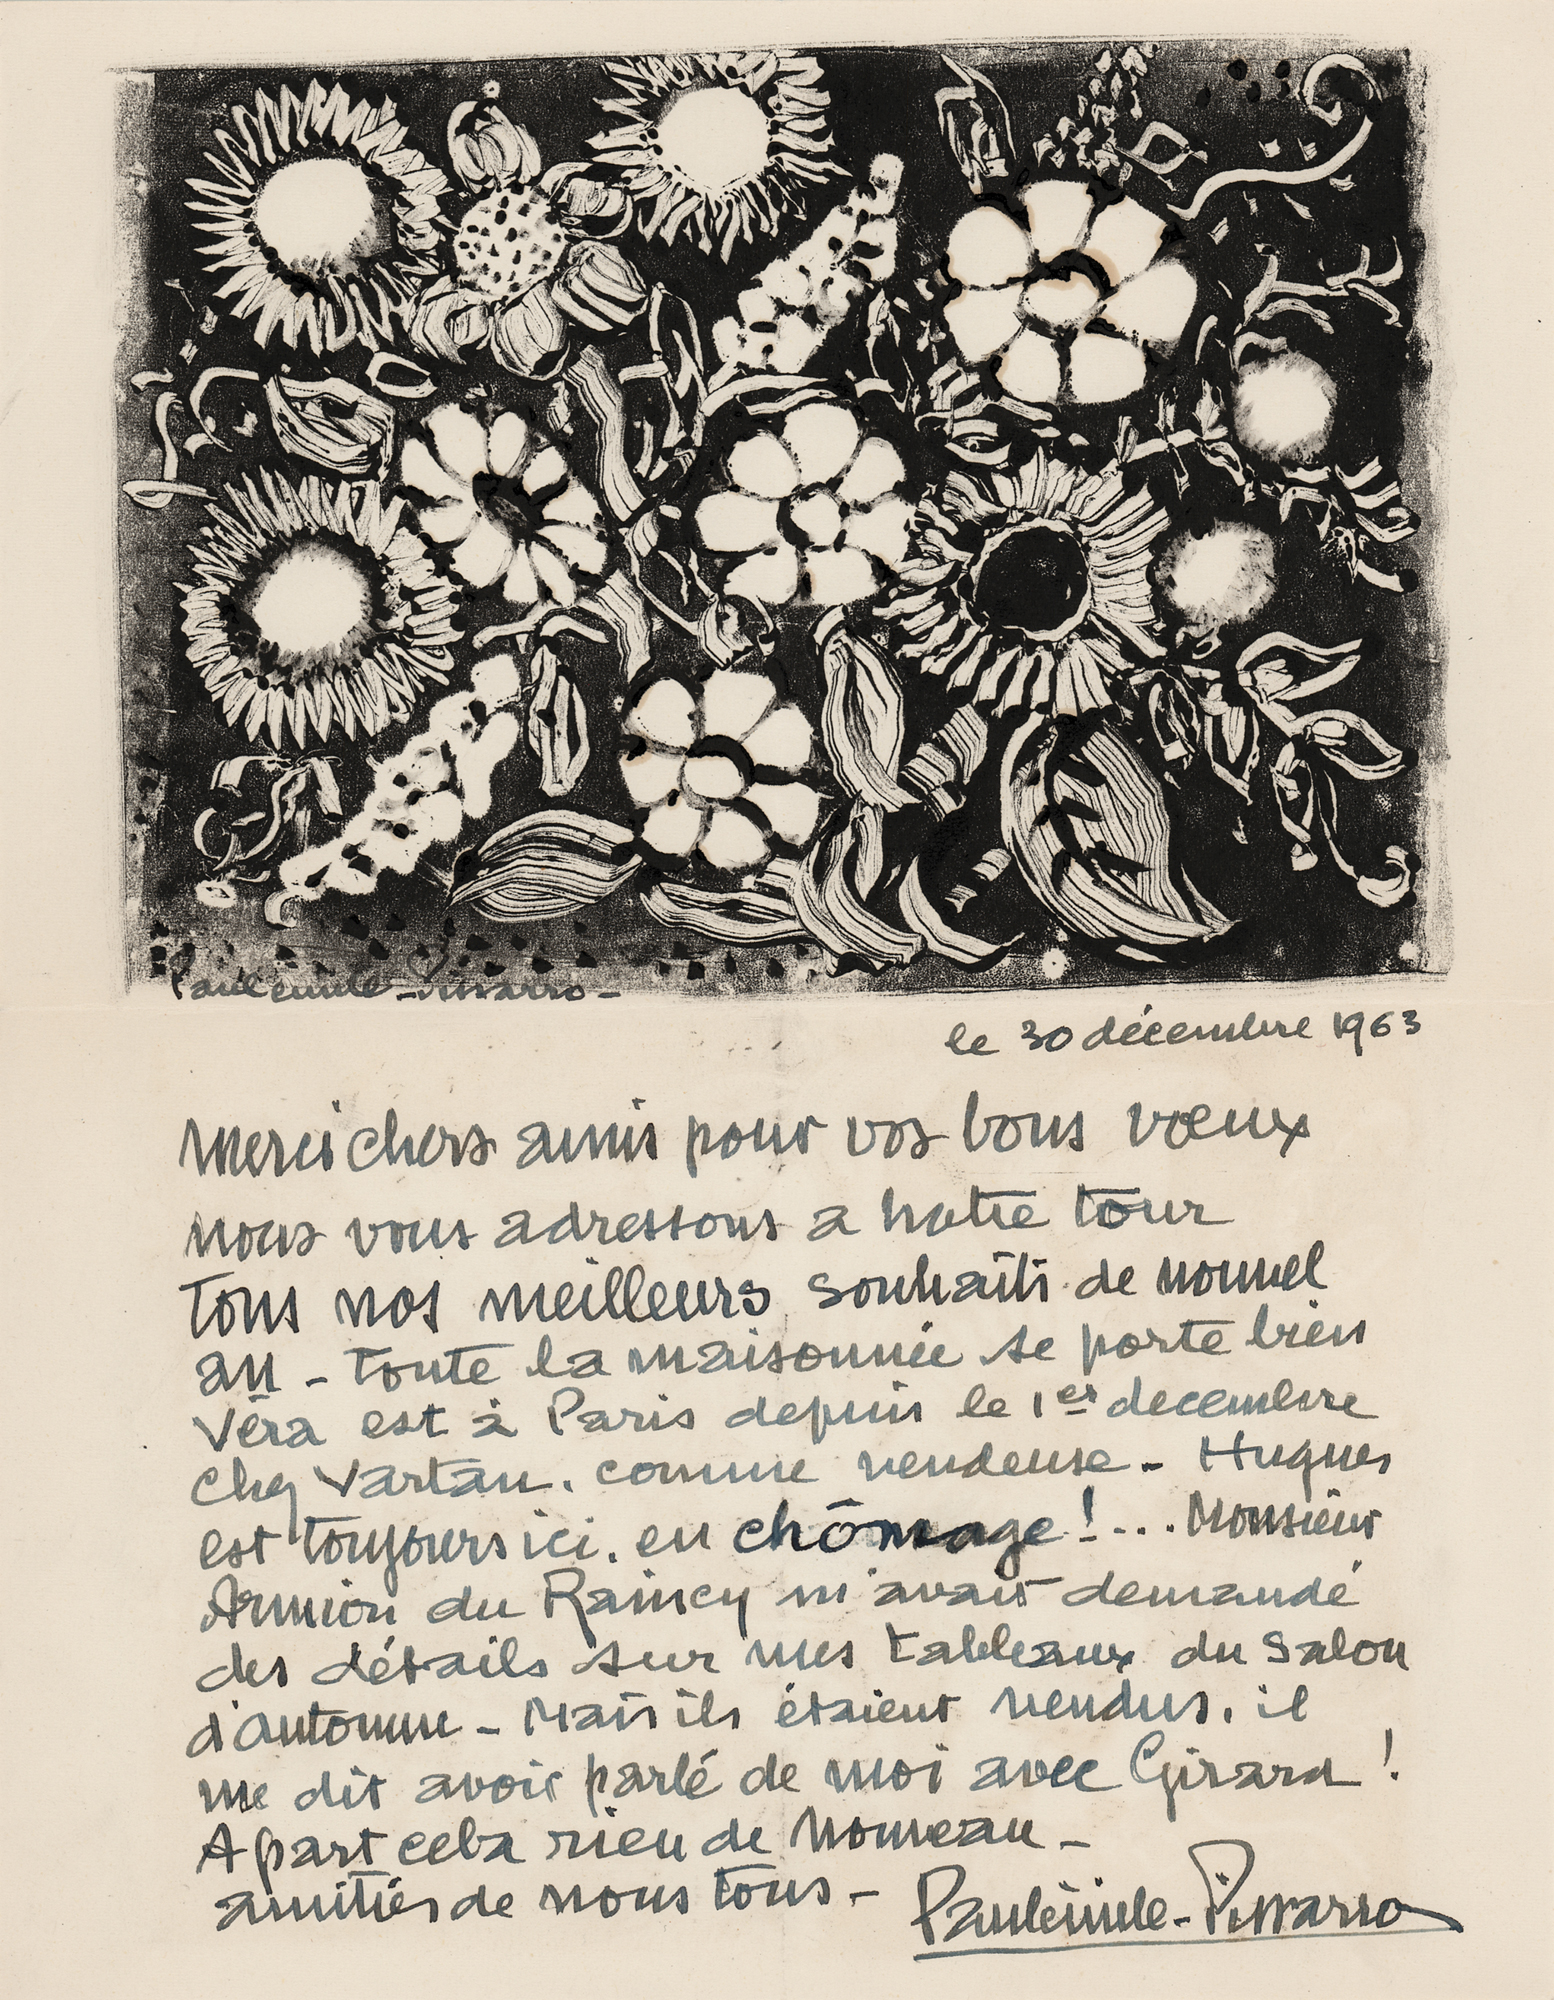 Paulémile-Pissarro-
le 30 décembre 1963
Merci chers amis pour vos bons vœux
nous vous adressons a notre tour
tous nos meilleurs souhaits de nouvel
an - toute la maisonnée se porte bien
Véra est à Paris depuis le 1er decembre
chez Vartan. comme vendeuse - Hugues
est toujours ici. en chômage ! ... Monsieur
du Raincy m'avait demandé
des détails sur mes tableaux du Salon
d'automne - Mais ils étaient vendus. il
me dit avoir parlé de moi avec Girard !
A part cela rien de nouveau -
amitiés de nous tous - Paulémile-Pissarro